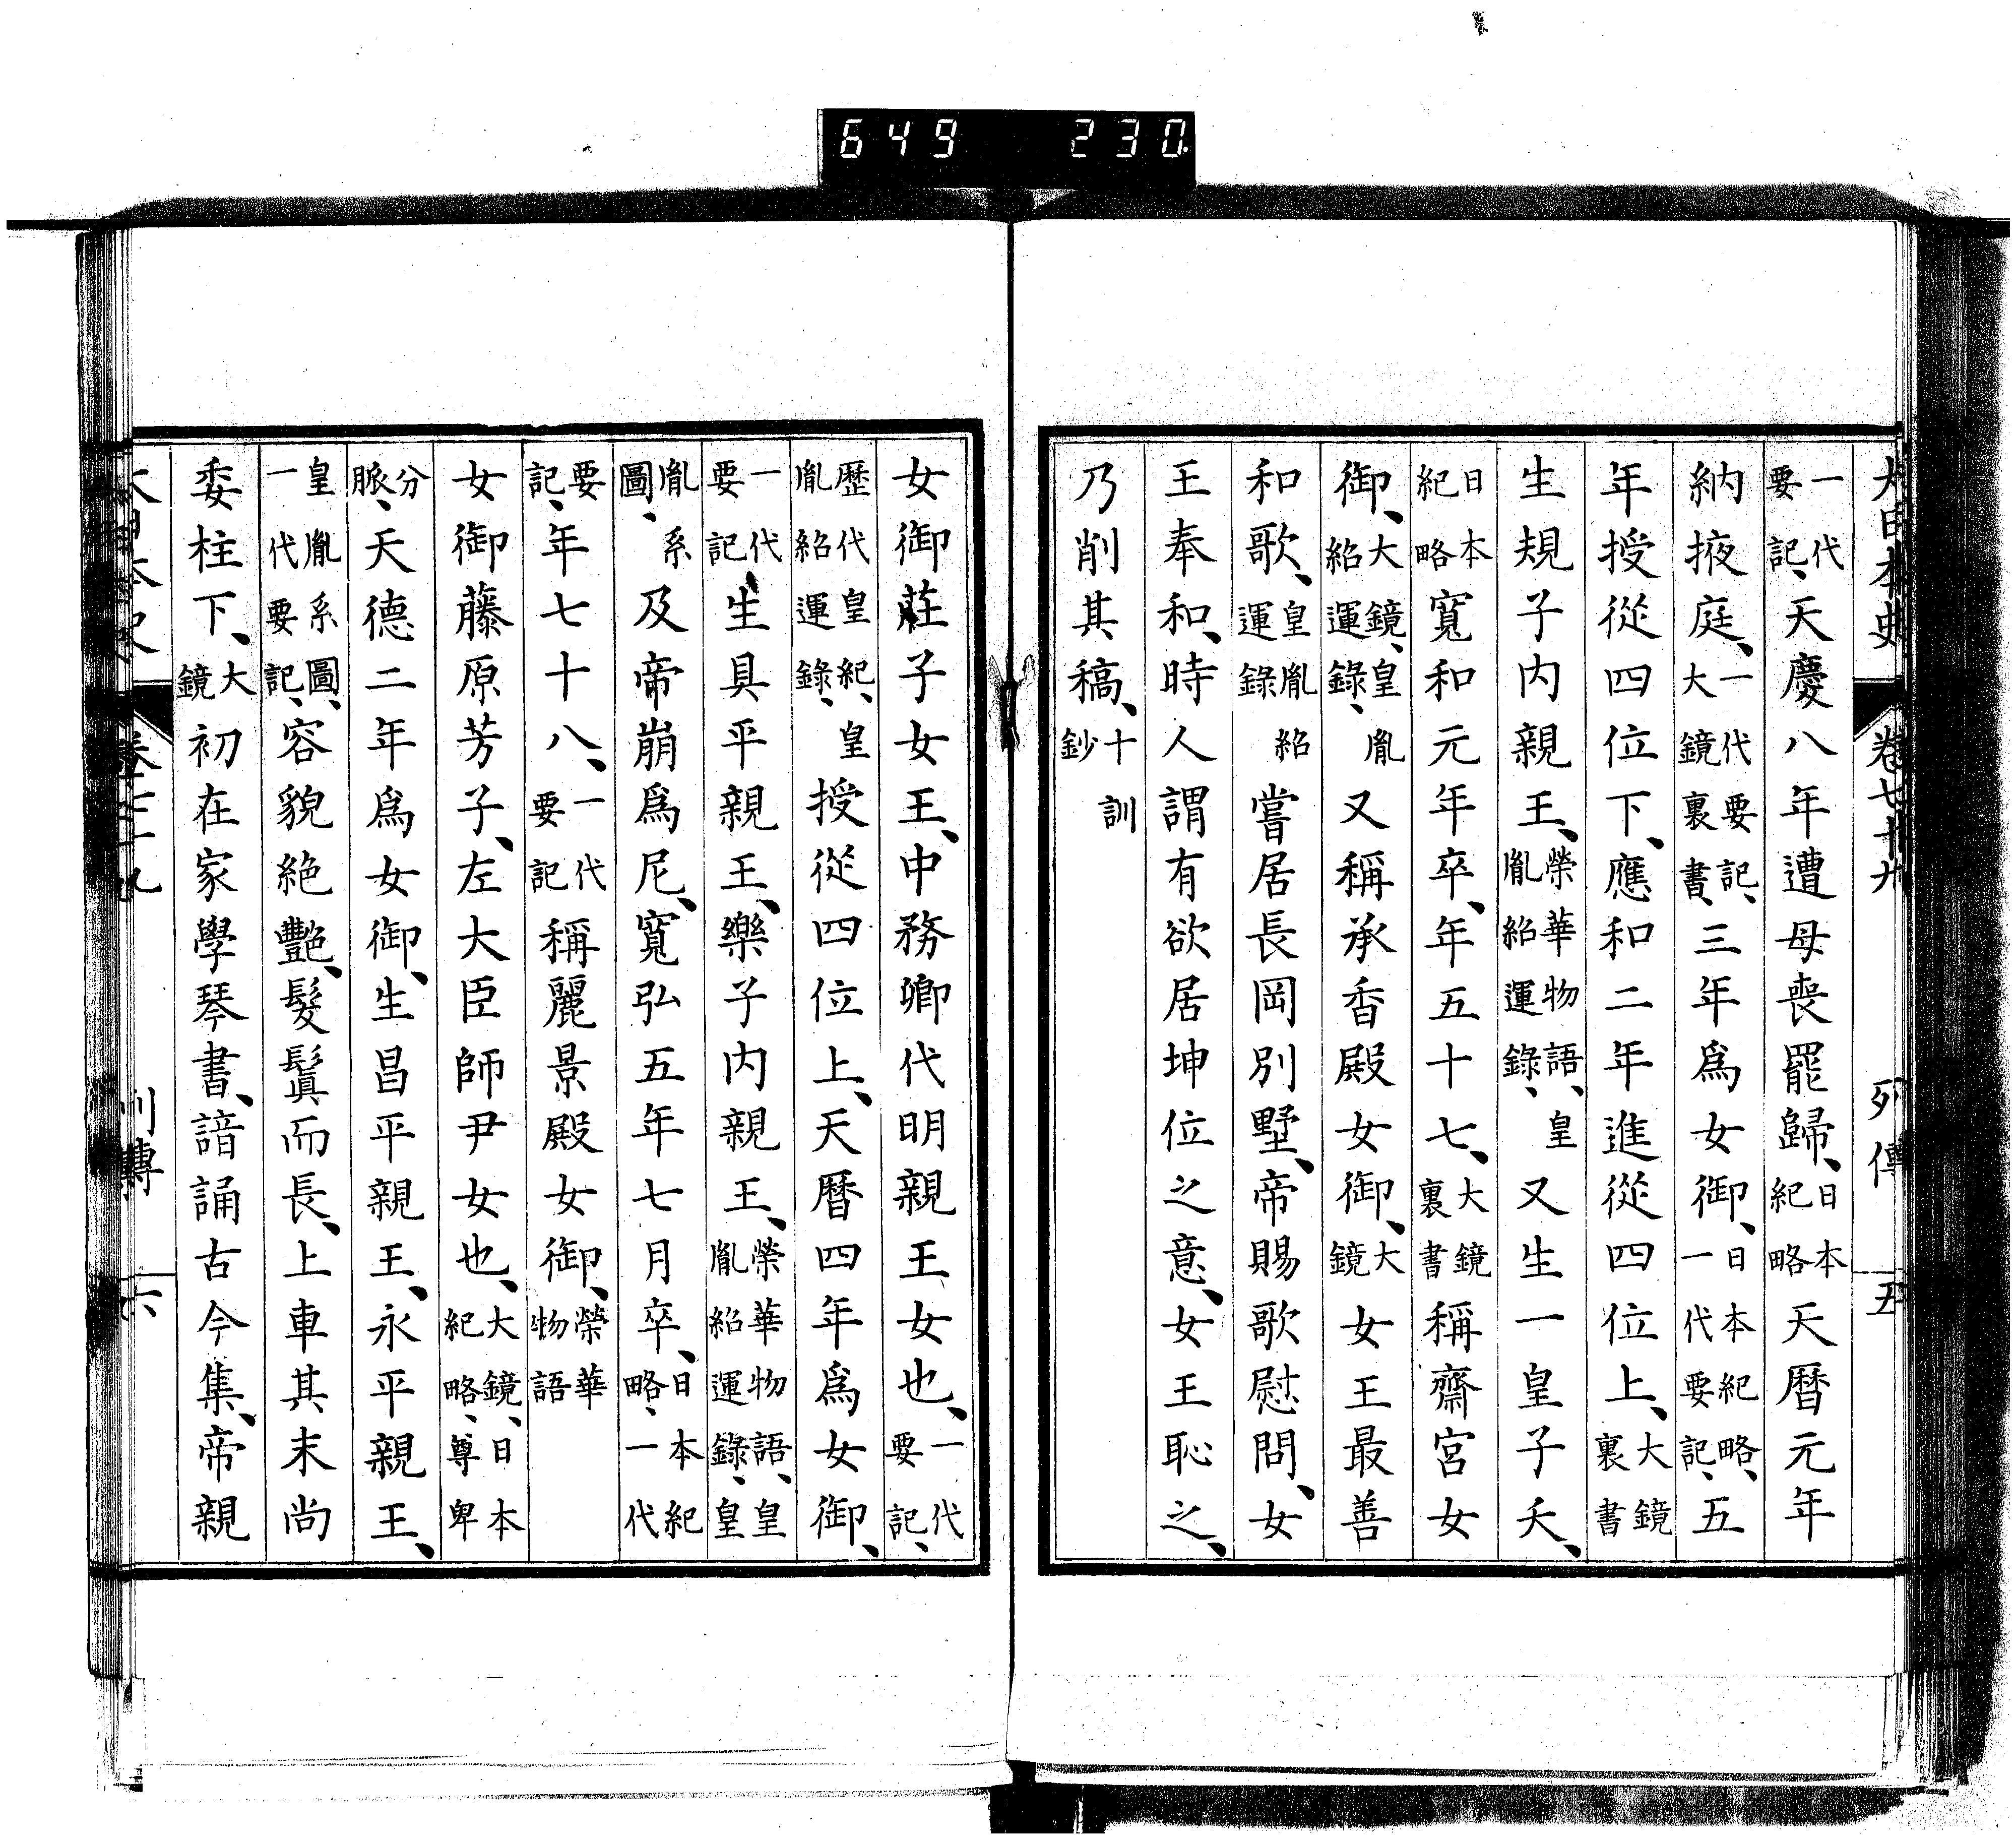 649 230
大日本史 卷七十九 列傳 五
一代要記、天慶八年遭母喪罷歸、日本紀略天暦元年
納掖庭、一代要記、大鏡裏書、三年爲女御、日本紀略、一代要記、五
年授從四位下、應和二年進從四位上、大鏡裏書
生規子内親王、榮華物語、皇胤紹運錄、又生一皇子夭、
日本紀略寬和元年卒、年五十七、大鏡裏書稱齋宮女
御、大鏡、皇胤紹運錄、又稱承香殿女御、大鏡女王最善
和歌、皇胤紹運錄嘗居長岡別墅、帝賜歌慰問、女
王奉和、時人謂有欲居坤位之意、女王恥之、
乃削其稿、十訓鈔
女御莊子女王、中務卿代明親王女也、一代要記、
歷代皇紀、皇胤紹運錄、授從四位上、天暦四年爲女御、
一代要記、生具平親王、樂子内親王、榮華物語、皇胤紹運錄、皇
胤系圖、及帝崩爲尼、寬弘五年七月卒、日本紀略、一代
要記、年七十八、一代要記稱麗景殿女御、榮華物語
女御藤原芳子、左大臣師尹女也、大鏡、日本紀略、尊卑
分脈、天德二年爲女御、生昌平親王、永平親王、
皇胤系圖、一代要記、容貌絶艷、髮鬒而長、上車其末尚
委柱下、大鏡初在家學琴書、諳誦古今集、帝親
大日本史 卷七十九 列傳 六